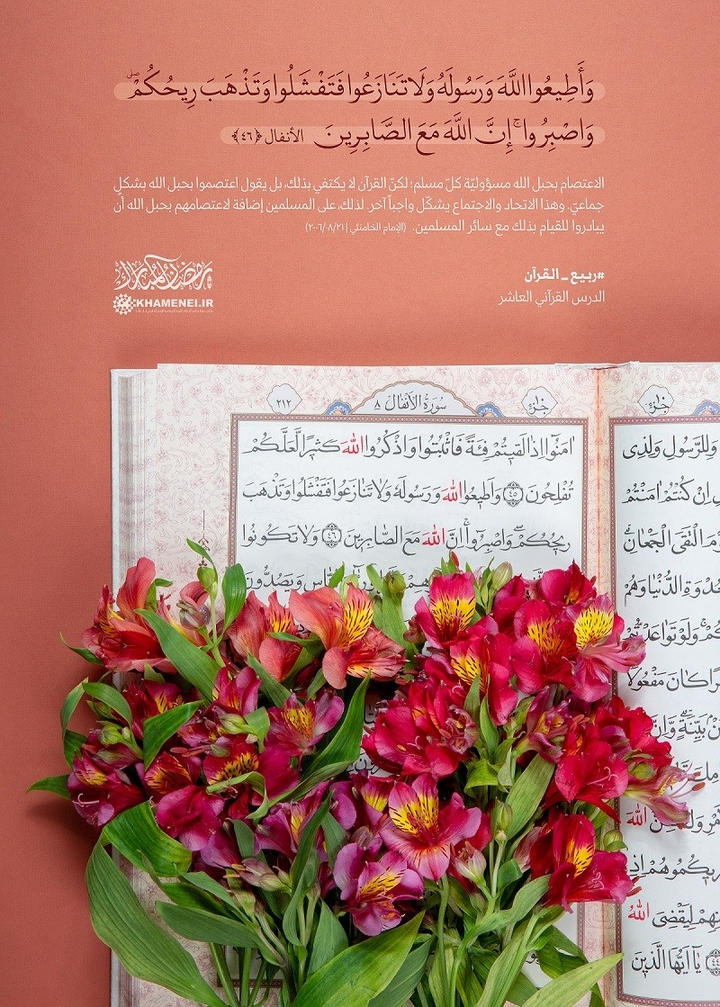 وَأَطِيعُوا اللَّهَ وَرَسُولَهُ وَلَا تَنَازَعُوا فَتَفْشَلُوا وَتَذْهَبَ رِيحُكُمْ ۖ
وَاصْبِرُوا ۚ إِنَّ اللَّهَ مَعَ الصَّابِرِينَ الأنفال ﴿٤٦﴾
الاعتصام بحبل الله مسؤوليّة كلّ مسلم؛ لكنّ القرآن لا يكتفي بذلك، بل يقول اعتصموا بحبل الله بشكلٍ
جماعيّ. وهذا الاتحاد والاجتماع يشكّل واجباً آخر. لذلك، على المسلمين إضافة لاعتصامهم بحبل الله أن
يبادروا للقيام بذلك مع سائر المسلمين. (الإمام الخامنئي | ٢٠٠٦/٠٨/٢١)
#ربيع_القرآن
الدرس القرآني العاشر
رمضان المبارك
KHAMENEI.IR
جزء
سورة الأنفال ٨
٢١٢
امَنُوا اِذَا لَقيتُمْ فِئَةً فَاثْبُتُوا وَاذْكُرُوا اللهَ كَثيرًا لَعَلَّكُمْ
تُفْلِحُونَ ٤٥ وَاَطيعُوا اللهَ وَرَسُولَهُ وَلا تَنازَعُوا فَتَفْشَلُوا وَتَذْهَبَ
ريحُكُمْ وَاصْبِرُوا اِنَّ اللهَ مَعَ الصّابِرينَ ٤٦ وَلا تَكُونُوا
وَيَصُدُّونَ
جزء
وَلِلرَّسُولِ وَلِذِى
اِنْ كُنْتُمْ امَنْتُمْ
الْتَقَى الْجَمْعانِ
الدُّنْيا وَهُمْ
وَلَوْ تَواعَدْتُمْ
كانَ مَفْعُولًا
بَيِّنَةٍ وَاِنَّ
اللهَ
اللهُ
يا اَيُّهَا الَّذينَ